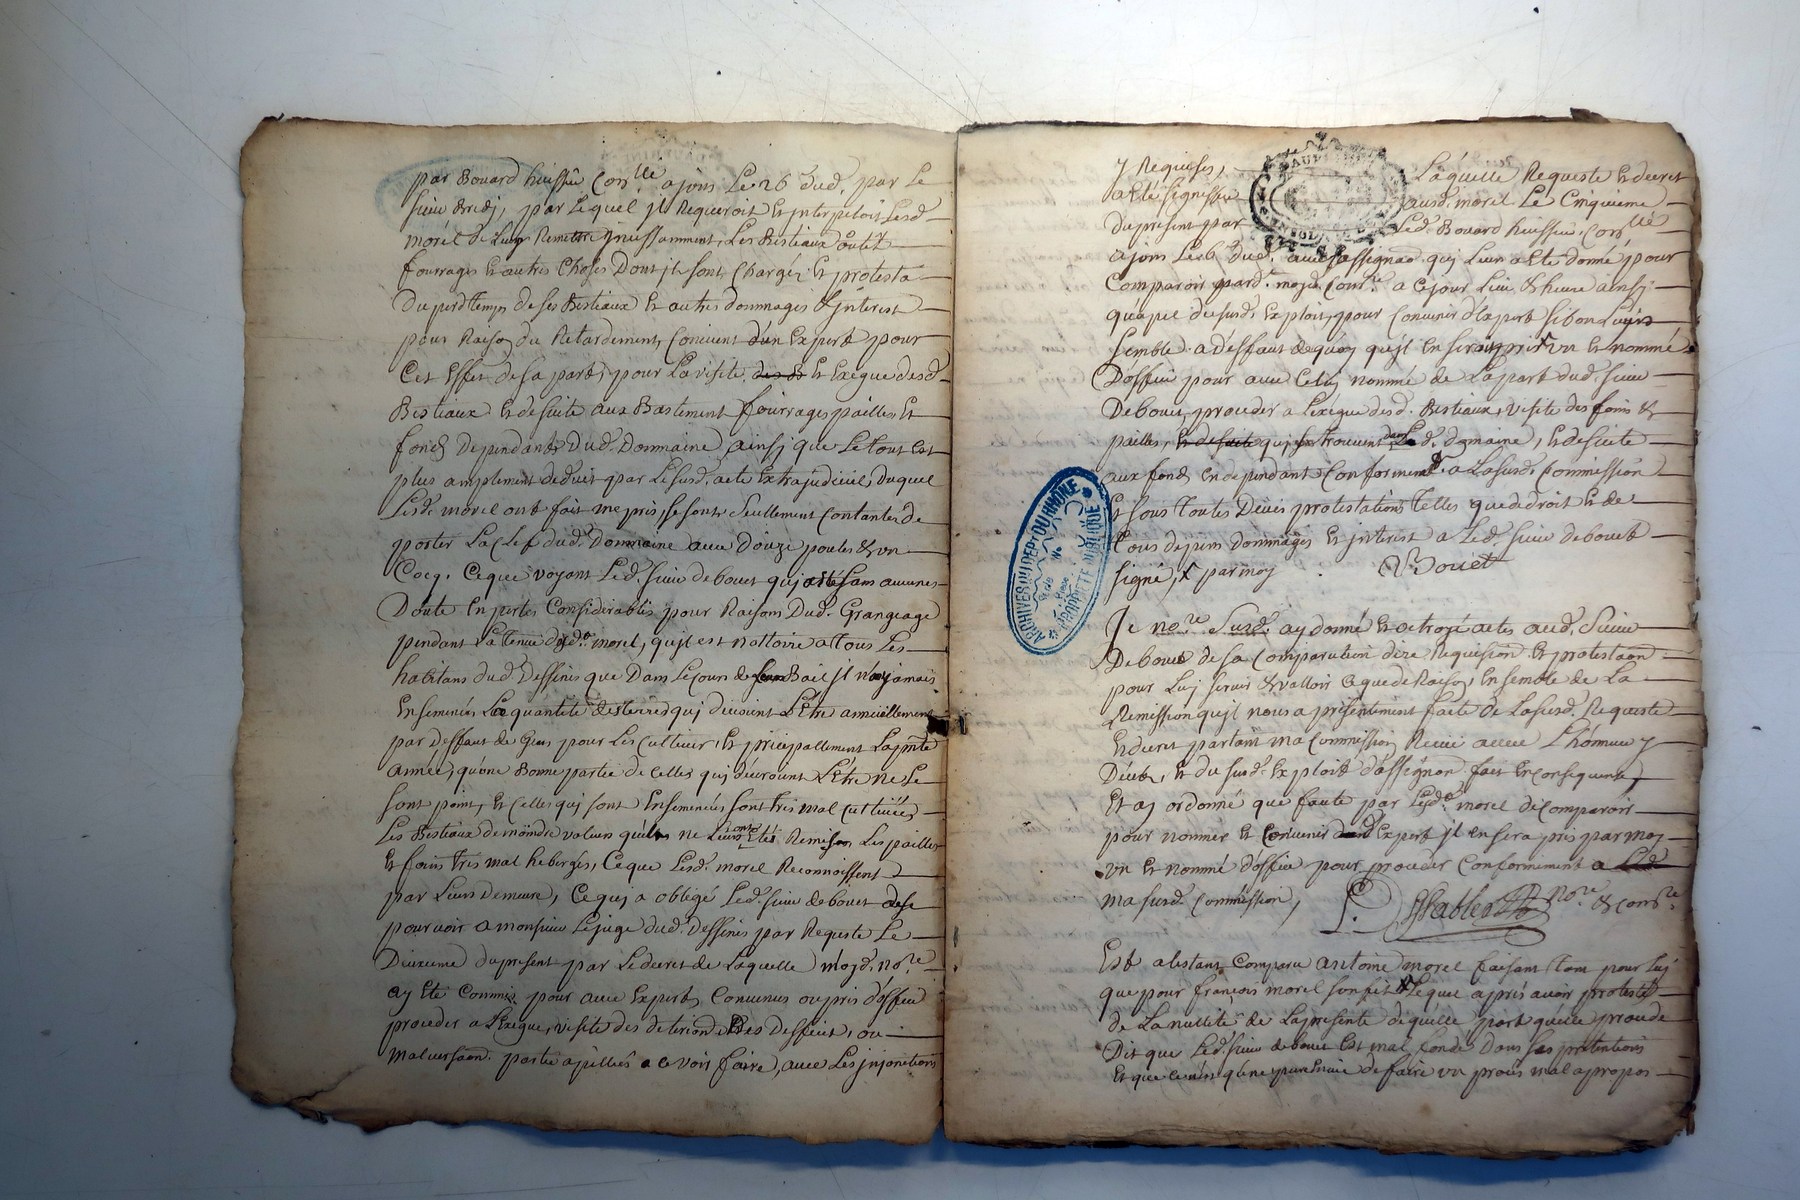 par Bouard huissier Con.lle a jour Le 26 dud. par Le
sieur par Lequel jl Requeroit Et interpeloit Lesd.
morél de Luy Remettre jncessamment Les Bestiaux
fourrages Et autres Choses Dont jls sont Chargés Et protesta
Du perd temps de ses Bestiaux Et autres dommages & jnterest
pour Raison du Retardement, Convenir d'un Expert pour
Cet Effet de sa part pour La visite Et Exegue desd.
Bestiaux Et de suite aux Bastiment fourrages pailles Et
fonds Dependants Dud. Dommaine, ainsj que Le tout Est
plus amplement deduit par Le susd. acte Extrajudiciel, Duquel
Lesd. morel ont fait mepris, se sont Seullement Contantés de
porter La Clef dud. Dommaine avec Douze poules & un
Cocq. Ce que voyant Led. sieur de bouet quj sans aucune
Doute En pertes Considerables pour Raison Dud. Grangeage
pendant La tenue morel, qu'jl est nottoire a tous Les
habitans dud. Dessines que Dans Le cours de Leur Bail jl n'ay jamais
Ensemencés La quantité des terres quj devoient L'Etre annuellement
par deffaut de Gens pour Les Cultiver, Et principallement La pnte
année, qu'une Bonne partie de Celles quj devroient L'Etre ne Le
sont point, Et Celles quj sont Ensemencées sont tres mal cultivées
Les Bestiaux de moindre valeur qu'ils ne Leurs ont Etés Remis Les pailles
Et foins tres mal hebergés, Ce que Lesd. morel Reconnoissent
par Leurs Demeure, Ce quj a obligé Led. sieur de bouet de se
pourvoir a monsieur Le juge dud. Dessines par Requeste Le
Deuxieme du present par Le decret de Laquelle moyd. no.re
ay Eté Commis pour avec Experts Convenus ou pris d'office
proceder a L'Exegue, visite des deteriorés Et des Deffaut, ou
malversaon. partie apellée a ce voir faire, avec Les jnjonctions
y Requises, Laquelle Requeste Et decret
a Eté signiffiée ausd. morel Le Cinquieme
Du present par Led. Bouard huissier Con.lle
a jour Le 6 dud. avec assignaon quj Leur a Eté donné pour
Comparoir pard.t moyd. Com.re a Ce jour Lieu & heure ainsj
qu'apert dususd. Exploit, pour Convenir d'Expert si bon Leurs
semble a deffaut de quoy qu'jl En seroit pris un Et nommé
D'office pour avec Celuy nommé de La part dud. sieur
De bouet, proceder a L'exegue desd. Bestiaux, visite des foins &
pailles, Et de suite quj se trouvent dans Led. domaine, Et de suite
aux fonds En dependant Conformem.t a La susd. Commission
Et sous Toutes Deües protestations Telles que de droit Et de
tous depens Dommages Et jnterest a Led. sieur de bouet
signé, par moy Bouet
Je no.re susd. ay donné Et octroyé actes aud. sieur
De bouet de sa Comparution dire Requision Et protestaon
pour Luj servir & valloir Ce que de Raison, Ensemble de La
Remission qu'jl nous a présentement faite de La susd. Requeste
Et decret portant ma Commission Receüe avec L'honneur
Deub, Et du susd. Exploit d'assignaon fait En consequence,
Et aj ordonné que faute par Lesd. morel de Comparoir
pour nommer Et Convenir Expert jl En sera pris par moy
un Et nommé d'office pour proceder Conformement a
ma susd. Commission, no.re & com.re
Est a l'istant Comparu antoine morel faisant tant pour Luj
que pour françois morel son fils Lequel aprés avoir protesté
de La nullité de La presente dequelle part qu'elle procede
Dit que Led. sieur de bouet Est mal fondé Dans ses pretentions
Et que ce n'est qu'une pure Envie de faire un procés mal a propos
ARCHIVES DU DEPT DU RHONE
PROPRIETE PUBLIQUE